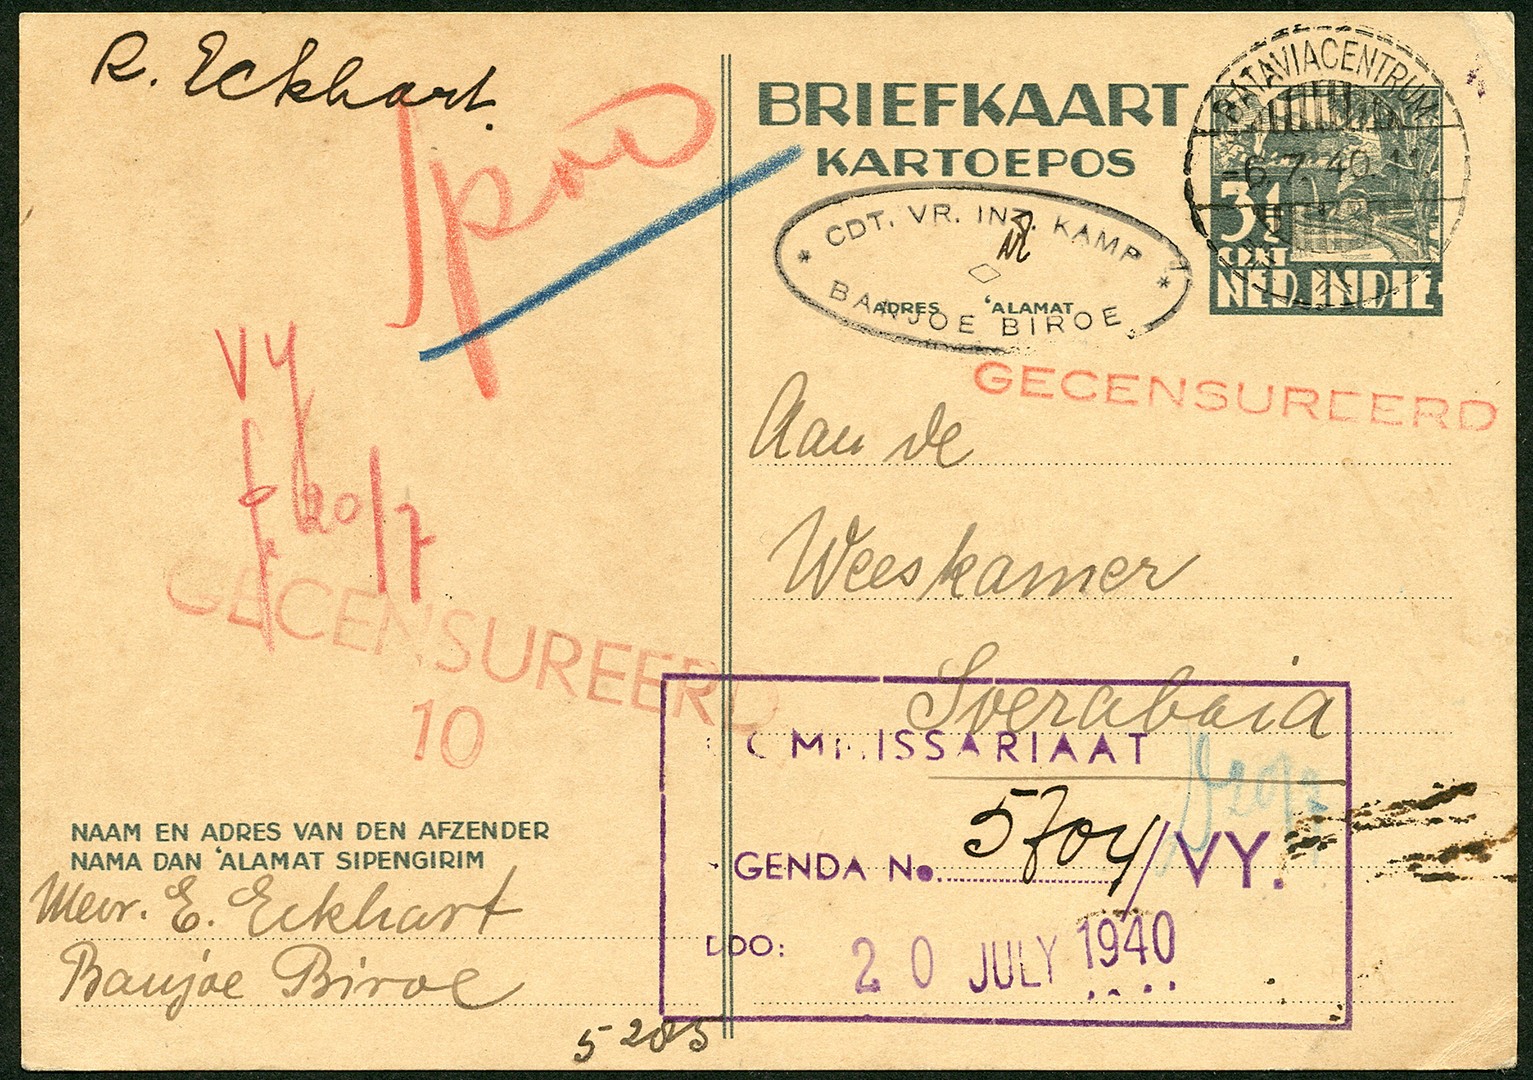 R. Eckhart.
BRIEFKAART
KARTOEPOS
BATAVIACENTRUM
-6.7.40.11
3½
CENT
NED. INDIE
CDT. VR. INT. KAMP
* *
ADRES 'ALAMAT
BANJOE BIROE
GECENSUREERD
VY
20/7
Aan de
Weeskamer
Soerabaia
GECENSUREERD
10
COMMISSARIAAT
20/7
GENDA No. 5704/VY.
DDO: 20 JULY 1940
NAAM EN ADRES VAN DEN AFZENDER
NAMA DAN 'ALAMAT SIPENGIRIM
Mevr. E. Eckhart
Banjoe Biroe
5285